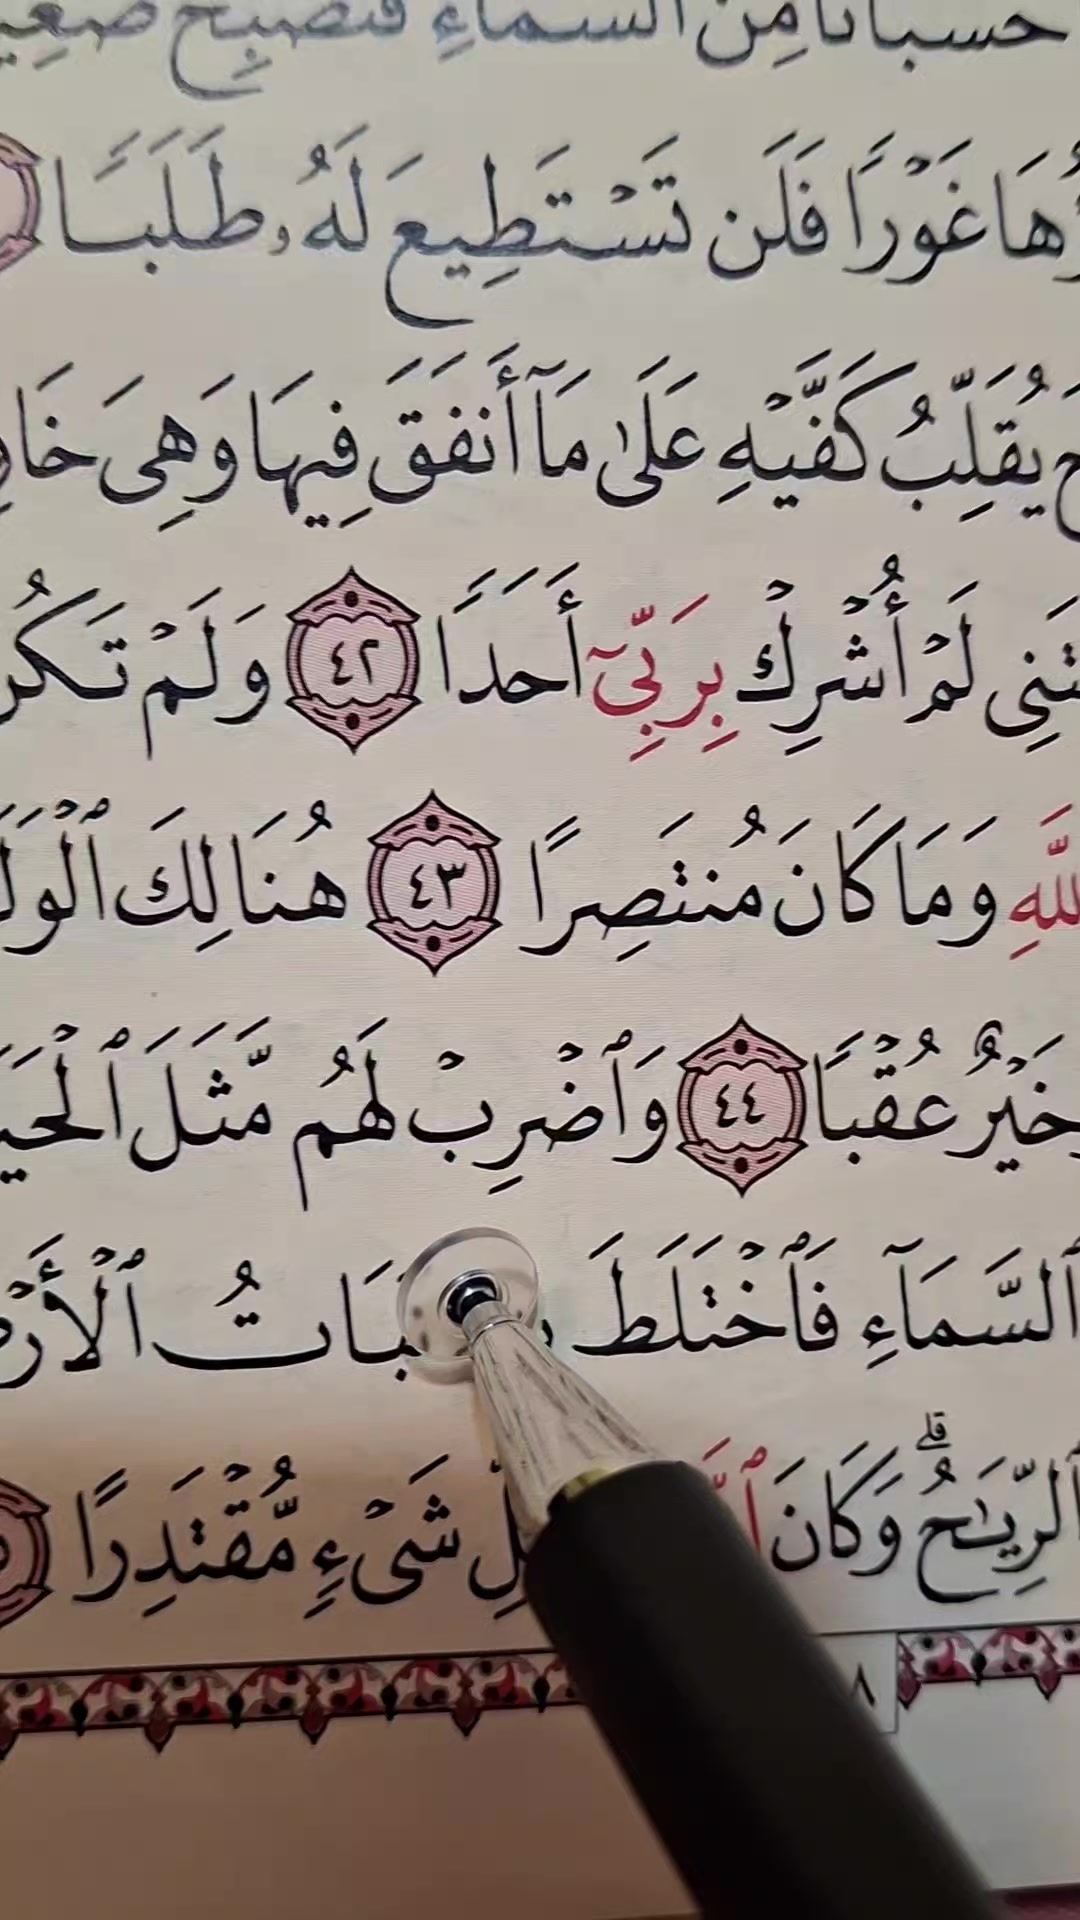 حسبانا من السماء فتصبح صعي
ؤُهَا غَوْرًا فَلَن تَسْتَطِيعَ لَهُۥ طَلَبًا
يُقَلِّبُ كَفَّيْهِ عَلَىٰ مَآ أَنفَقَ فِيهَا وَهِىَ خَا
تَنِى لَمْ أُشْرِكْ بِرَبِّىٓ أَحَدًا ٤٢ وَلَمْ تَكُ
ٱللَّهِ وَمَا كَانَ مُنتَصِرًا ٤٣ هُنَالِكَ ٱلْوَلَ
خَيْرٌ عُقْبًا ٤٤ وَٱضْرِبْ لَهُم مَّثَلَ ٱلْحَيَ
ٱلسَّمَآءِ فَٱخْتَلَطَ بَاتُ ٱلْأَرْ
ٱلرِّيَـٰحُ ۗ وَكَانَ شَىْءٍ مُّقْتَدِرًا
٨